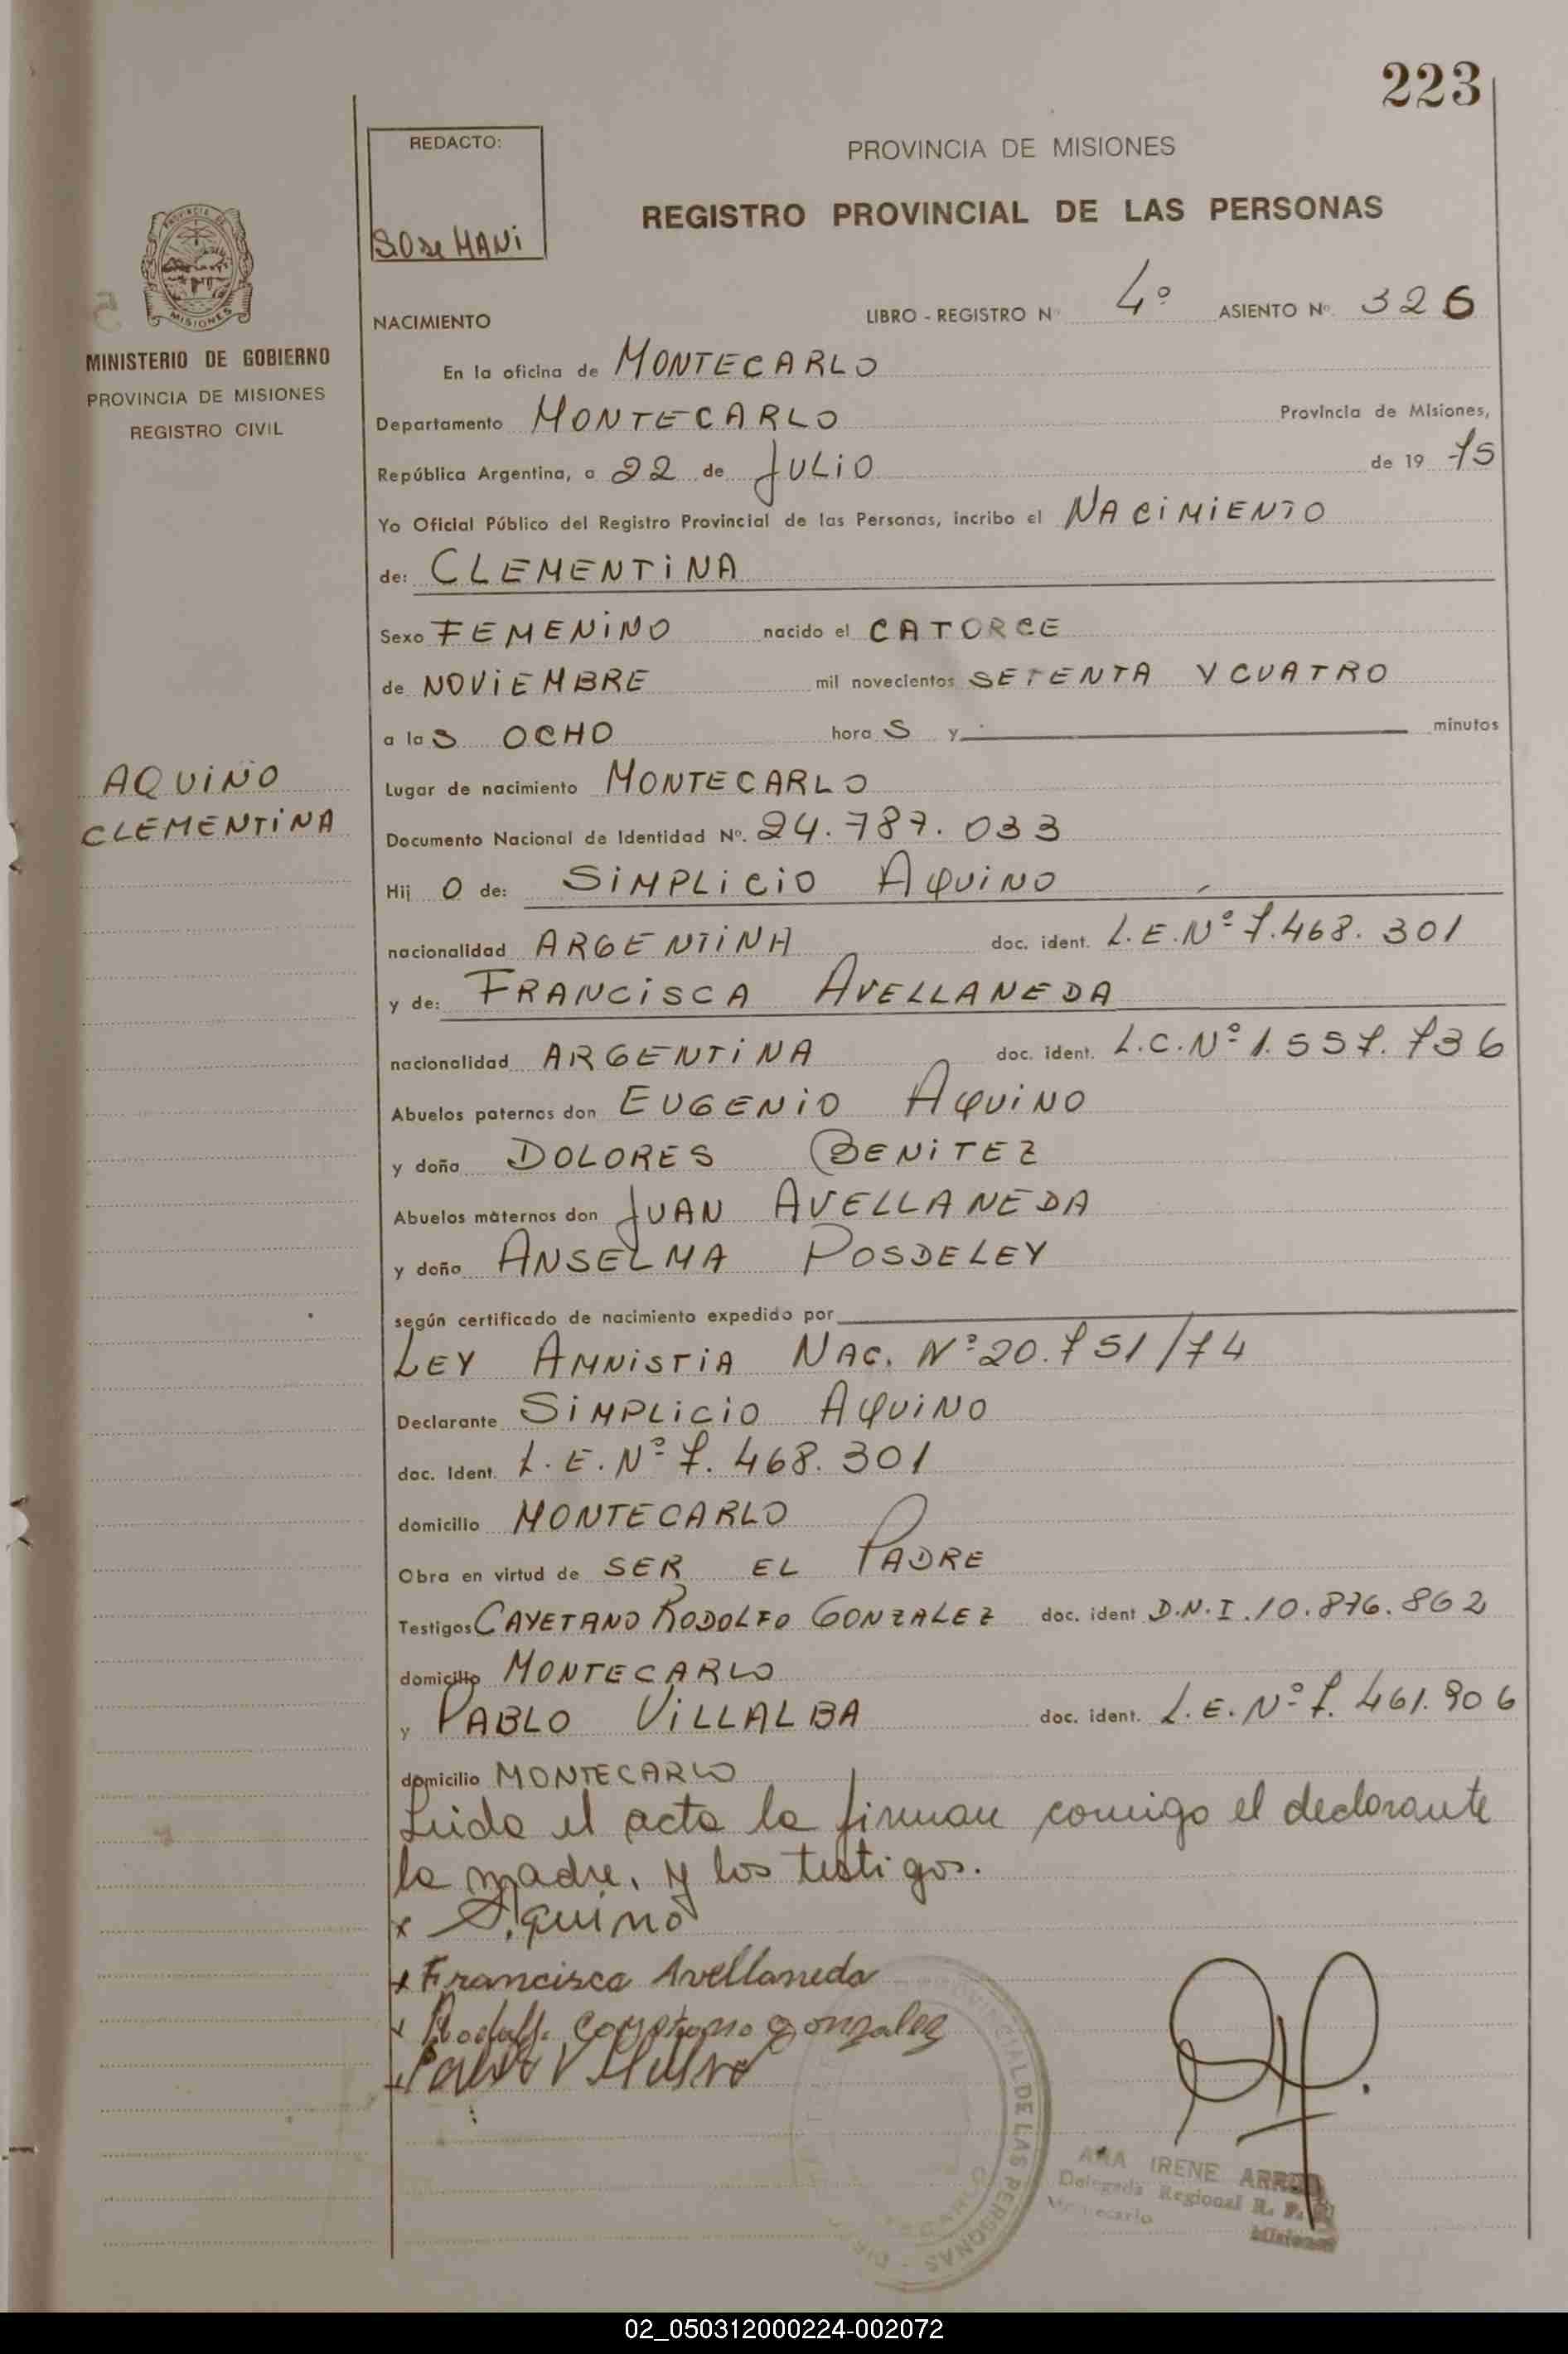 223
REDACTO:
PROVINCIA DE MISIONES
REGISTRO PROVINCIAL DE LAS PERSONAS
NACIMIENTO LIBRO - REGISTRO Nº 4º ASIENTO Nº 326
MINISTERIO DE GOBIERNO
PROVINCIA DE MISIONES
REGISTRO CIVIL
En la oficina de MONTECARLO
Departamento MONTECARLO Provincia de Misiones,
República Argentina, a 22 de JULIO de 19 75
Yo Oficial Público del Registro Provincial de las Personas, incribo el NACIMIENTO
de: CLEMENTINA
Sexo FEMENINO nacido el CATORCE
de NOVIEMBRE mil novecientos SETENTA Y CUATRO
a las OCHO horas y minutos
AQUINO
CLEMENTINA
Lugar de nacimiento MONTECARLO
Documento Nacional de Identidad Nº. 24.787.033
Hijo de: SIMPLICIO AQUINO
nacionalidad ARGENTINA doc. ident. L.E.Nº 7.468.301
y de: FRANCISCA AVELLANEDA
nacionalidad ARGENTINA doc. ident. L.C.Nº 1.557.736
Abuelos paternos don EUGENIO AQUINO
y doña DOLORES BENITEZ
Abuelos maternos don JUAN AVELLANEDA
y doña ANSELMA POSDELEY
según certificado de nacimiento expedido por
LEY AMNISTIA NAC. Nº 20.751/74
Declarante SIMPLICIO AQUINO
doc. Ident. L.E.Nº 7.468.301
domicilio MONTECARLO
Obra en virtud de SER EL PADRE
Testigos CAYETANO RODOLFO GONZALEZ doc. ident D.N.I. 10.876.862
domicilio MONTECARLO
y PABLO VILLALBA doc. ident. L.E.Nº 7.461.906
domicilio MONTECARLO
Leida el acta la firman comigo el declarante
la madre, y los testigos.
x S. Aquino
x Francisca Avellaneda
x Rodolfo Cayetano Gonzalez
x Pablo Villalva
PROVINCIAL DE LAS PERSONAS
ANA IRENE
Delegada Regional R. P.
Montecarlo Misiones
02_050312000224-002072